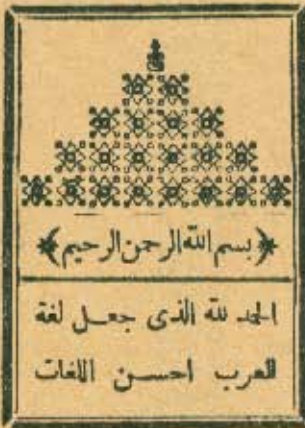 ﴿بسم الله الرحمن الرحيم﴾
الحمد لله الذى جعل لغة
العرب احسن اللغات